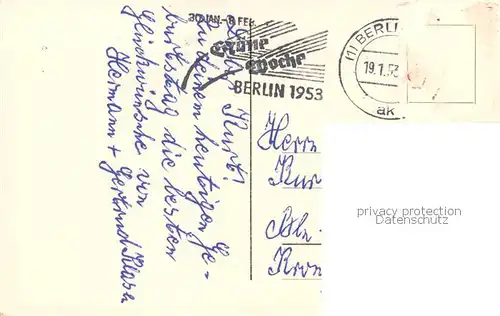 30. JAN. - 8 FEB.
Grüne
Woche
BERLIN 1953
(1) BERLI
19.1.53
ak
Kurt!
Zu deinem heutigen Ge-
burtstag die besten
Glückwünsche von
Hermann + Gertrud
Herrn
Kur
Bln.
privacy protection
Datenschutz